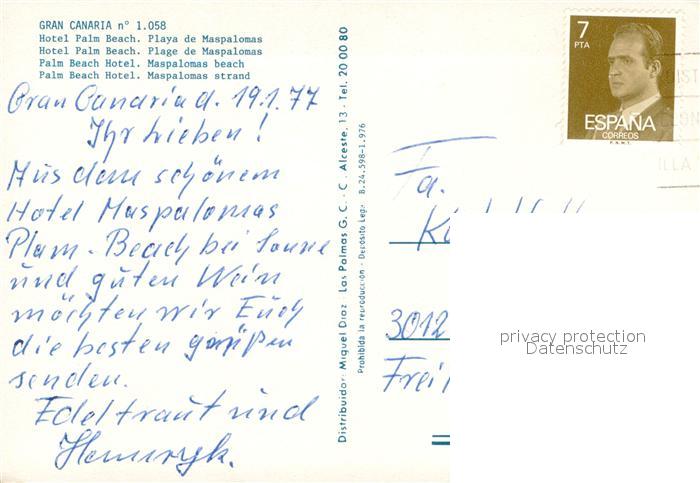 GRAN CANARIA nº 1.058
Hotel Palm Beach. Playa de Maspalomas
Hotel Palm Beach. Plage de Maspalomas
Palm Beach Hotel. Maspalomas beach
Palm Beach Hotel. Maspalomas strand
Gran Canaria d. 19.1.77
Ihr Lieben!
Aus dem schönem
Hotel Maspalomas
Plam-Beach bei Sonne
und guten Wein
möchten wir Euch
die besten grüßen
senden.
Edeltraut und
Henryk.
Distribuidor: Miguel Diaz Las Palmas G. C. - C. Alceste, 13 - Tel. 20 00 80
Prohibida la reproducción - Depósito Leg. B. 24.598-1.976
7
PTA
ESPAÑA
CORREOS
F.N.M.T.
ILLA
Fa.
3012
privacy protection
Datenschutz